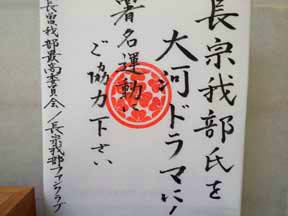 長宗我部氏を
大河ドラマに!
署名運動に
ご協力下さい
長曽我部最高委員会/長宗我部ファンクラブ